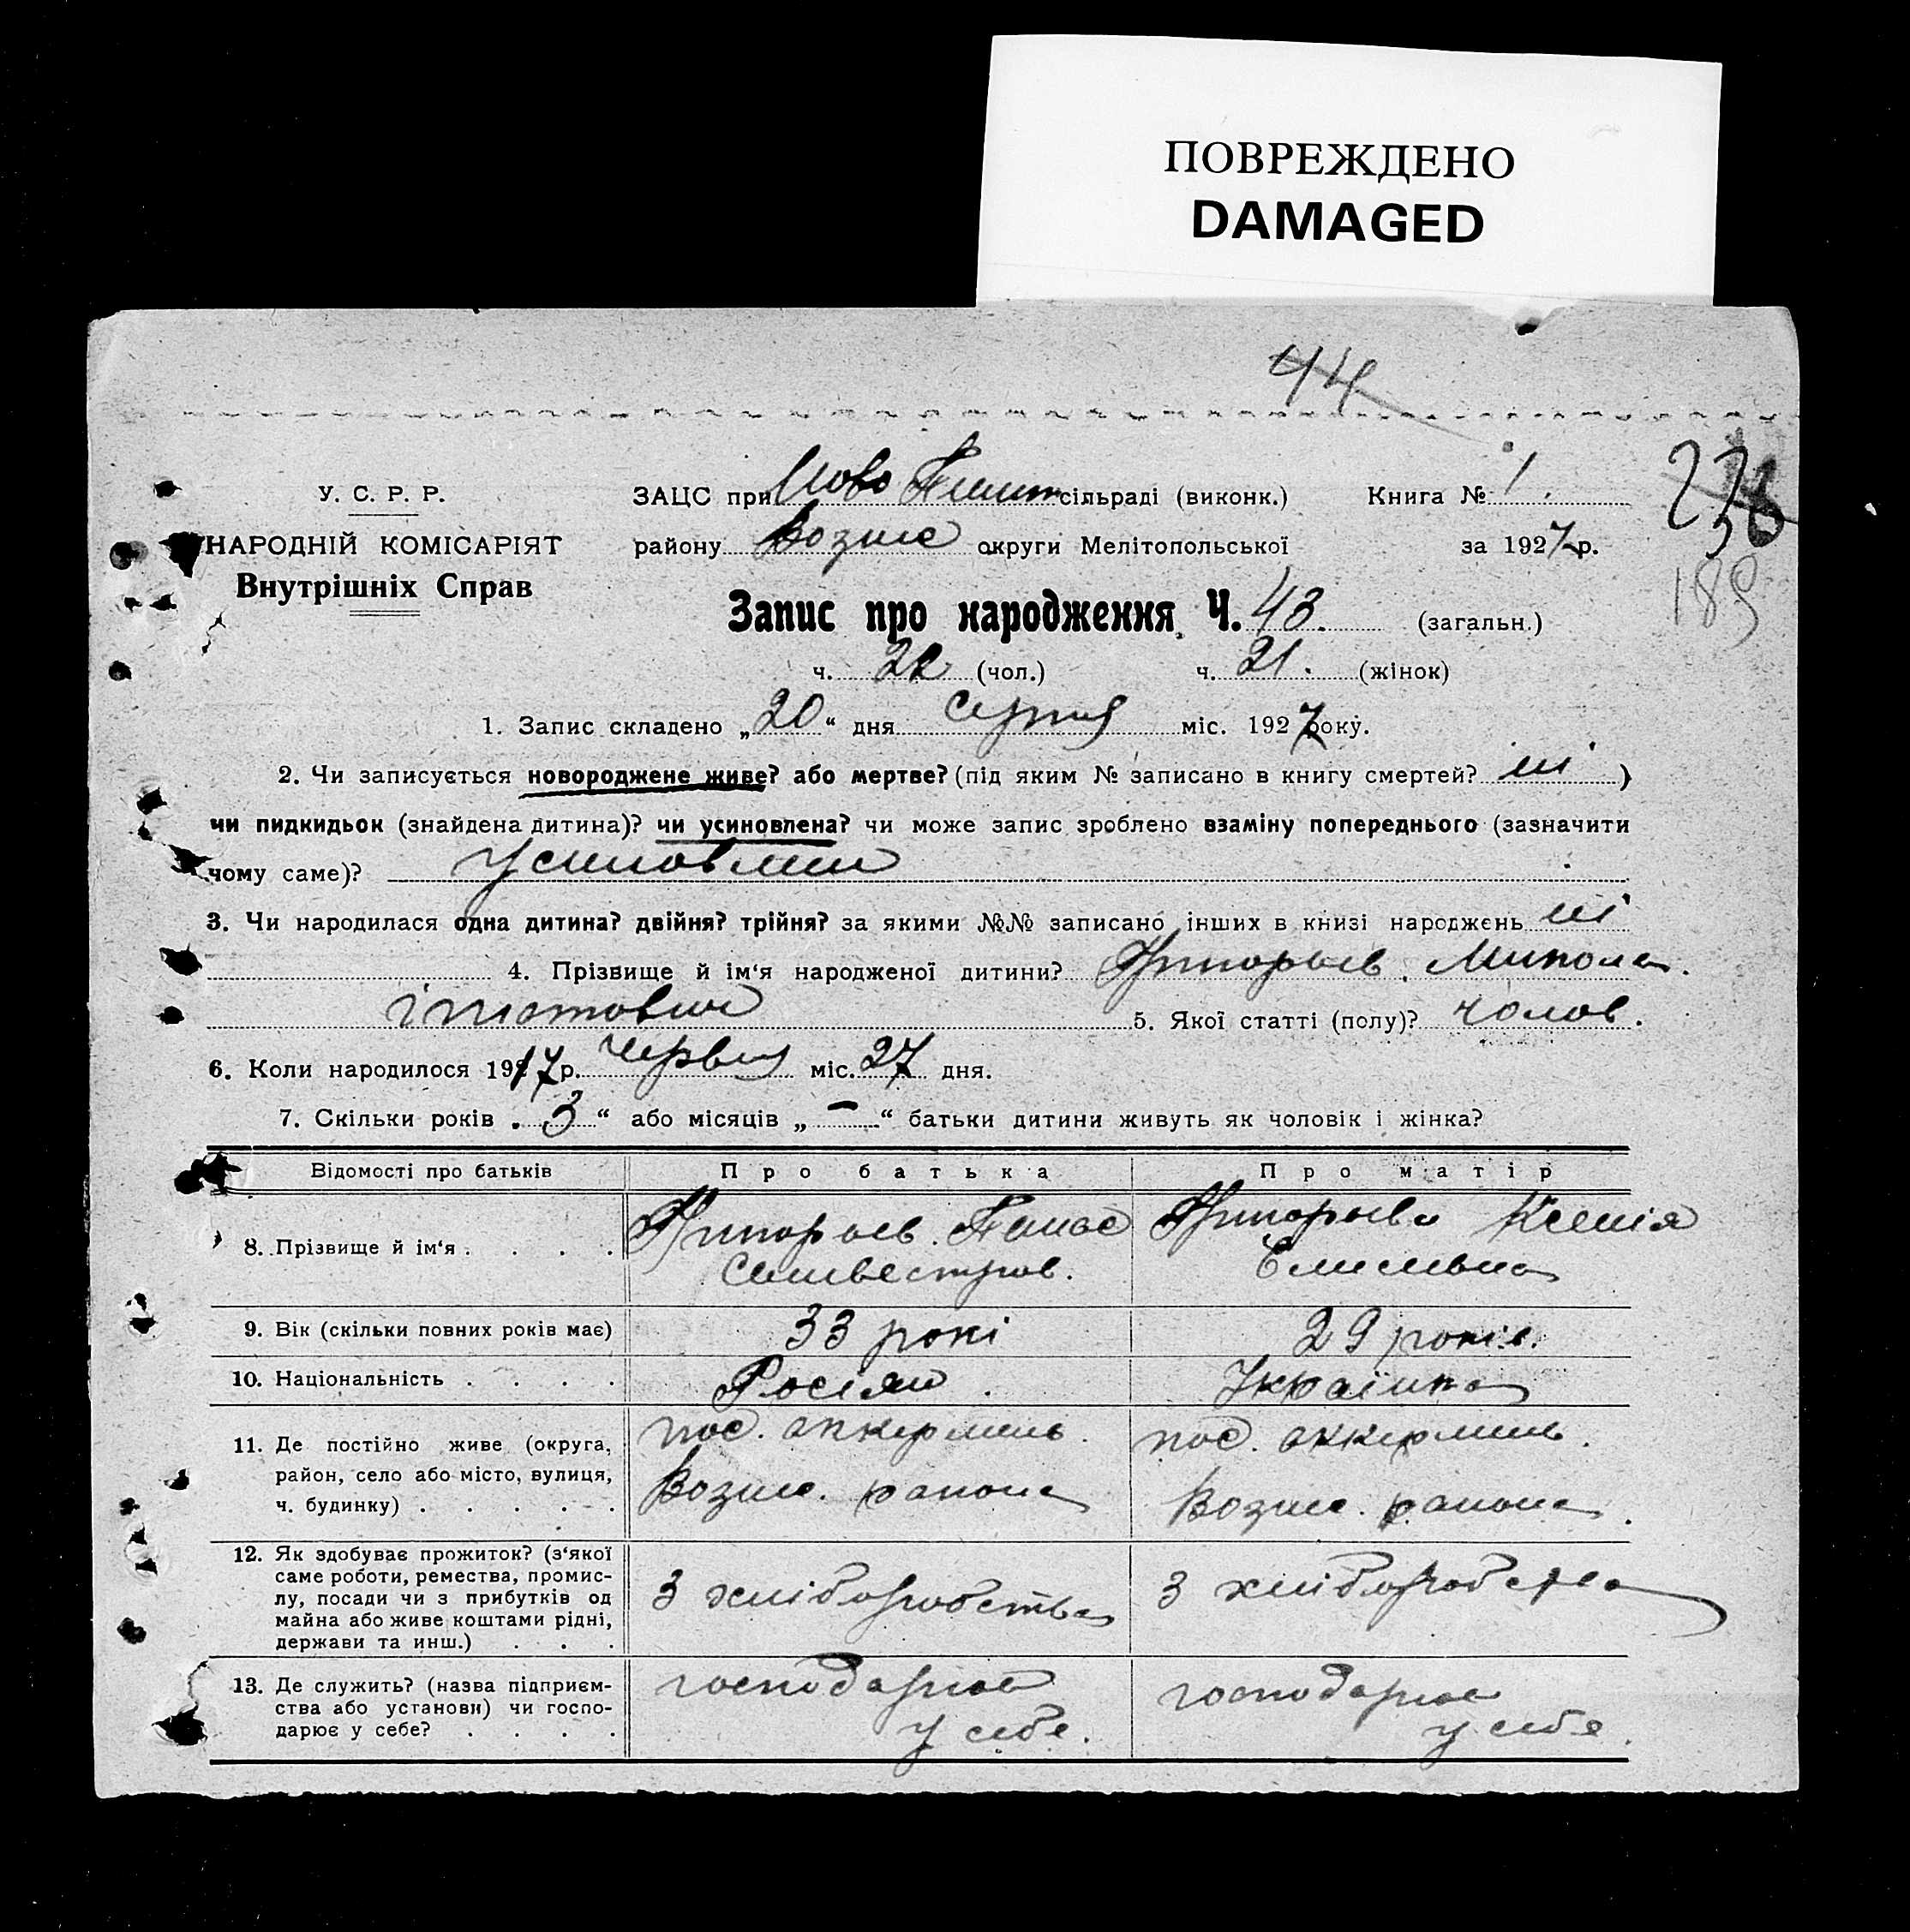 ПОВРЕЖДЕНО
DAMAGED
44
236
189
У. С. Р. Р.
НАРОДНІЙ КОМІСАРІЯТ
Внутрішніх Справ
ЗАЦС при Ново сільраді (виконк.) Книга № 1.
району Возне округи Мелітопольської за 1927 р.
Запис про народження Ч. 43. (загальн.)
ч. 22 (чол.) ч. 21. (жінок)
1. Запис складено „20“ дня Серпня міс. 1927 року.
2. Чи записується новороджене живе? або мертве? (під яким № записано в книгу смертей? ні )
чи пидкидьок (знайдена дитина)? чи усиновлена? чи може запис зроблено взаміну попереднього (зазначити
чому саме)? Усиновлен
3. Чи народилася одна дитина? двійня? трійня? за якими №№ записано інших в книзі народжень ні
4. Прізвище й ім‘я народженої дитини? Григорьев. Микола.
5. Якої статті (полу)? чолов.
6. Коли народилося 1917 р. Червня міс. 27 дня.
7. Скільки років „3“ або місяців „—“ батьки дитини живуть як чоловік і жінка?
Відомості про батьків Про батька Про матір
8. Прізвище й ім‘я . . . . Григорьев. Панас Григорьева Ксенія
Селивестров. Елисеевна
9. Вік (скільки повних років має) 33 рокі 29 років.
10. Національність . . . . Росіян. Українка
11. Де постійно живе (округа, район, село або місто, вулиця, ч. будинку) . . . . . пос. аккермень. пос. аккермень.
Возне. района Возне. района.
12. Як здобуває прожиток? (з‘якої
саме роботи, ремества, промис-
лу, посади чи з прибутків од
майна або живе коштами рідні,
держави та инш.) . . . З хліборобства З хліборобства
13. Де служить? (назва підприєм-
ства або установи) чи госпо-
дарює у себе? . . . . господарює господарює
у себе. у себе.